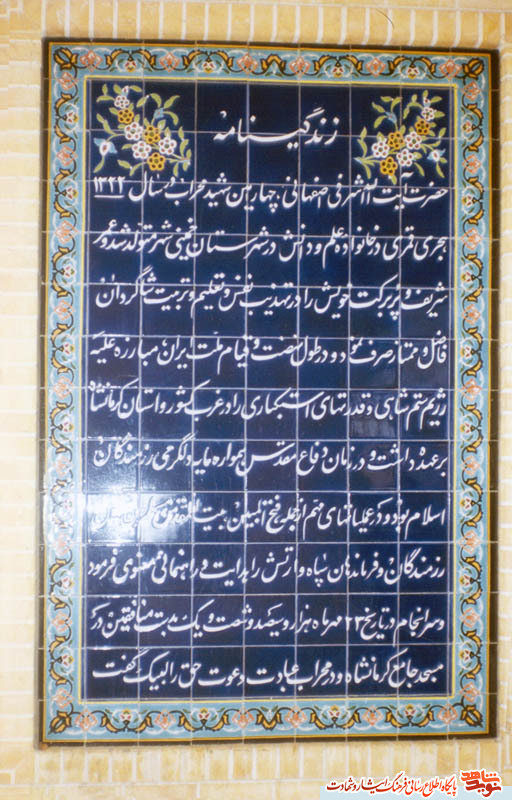 زندگینامه
حضرت آیت الله اشرفی اصفهانی، چهارمین شهید محراب در سال ۱۳۲۲
هجری قمری در خانواده علم و دانش در شهرستان خمینی شهر متولد شد و عمر
شریف و پربرکت خویش را در تهذیب نفس و تعلیم و تربیت شاگردان
فاضل و ممتاز صرف نمود و در طول نهضت و قیام ملت ایران مبارزه علیه
رژیم ستم شاهی و قدرتهای استکباری را در غرب کشور و استان کرمانشاه
بر عهده داشت و در زمان دفاع مقدس همواره مایه دلگرمی رزمندگان
اسلام بود و در عملیاتهای مهم از جمله فتح المبین بیت المقدس
رزمندگان و فرماندهان سپاه و ارتش را هدایت و راهنمائی معنوی فرمود
و سرانجام در تاریخ ۲۳ مهرماه هزار و سیصد و شصت و یک بدست منافقین در
مسجد جامع کرمانشاه و در محراب عبادت دعوت حق را لبیک گفت
نوید شاهد
پایگاه اطلاع رسانی فرهنگ ایثار و شهادت